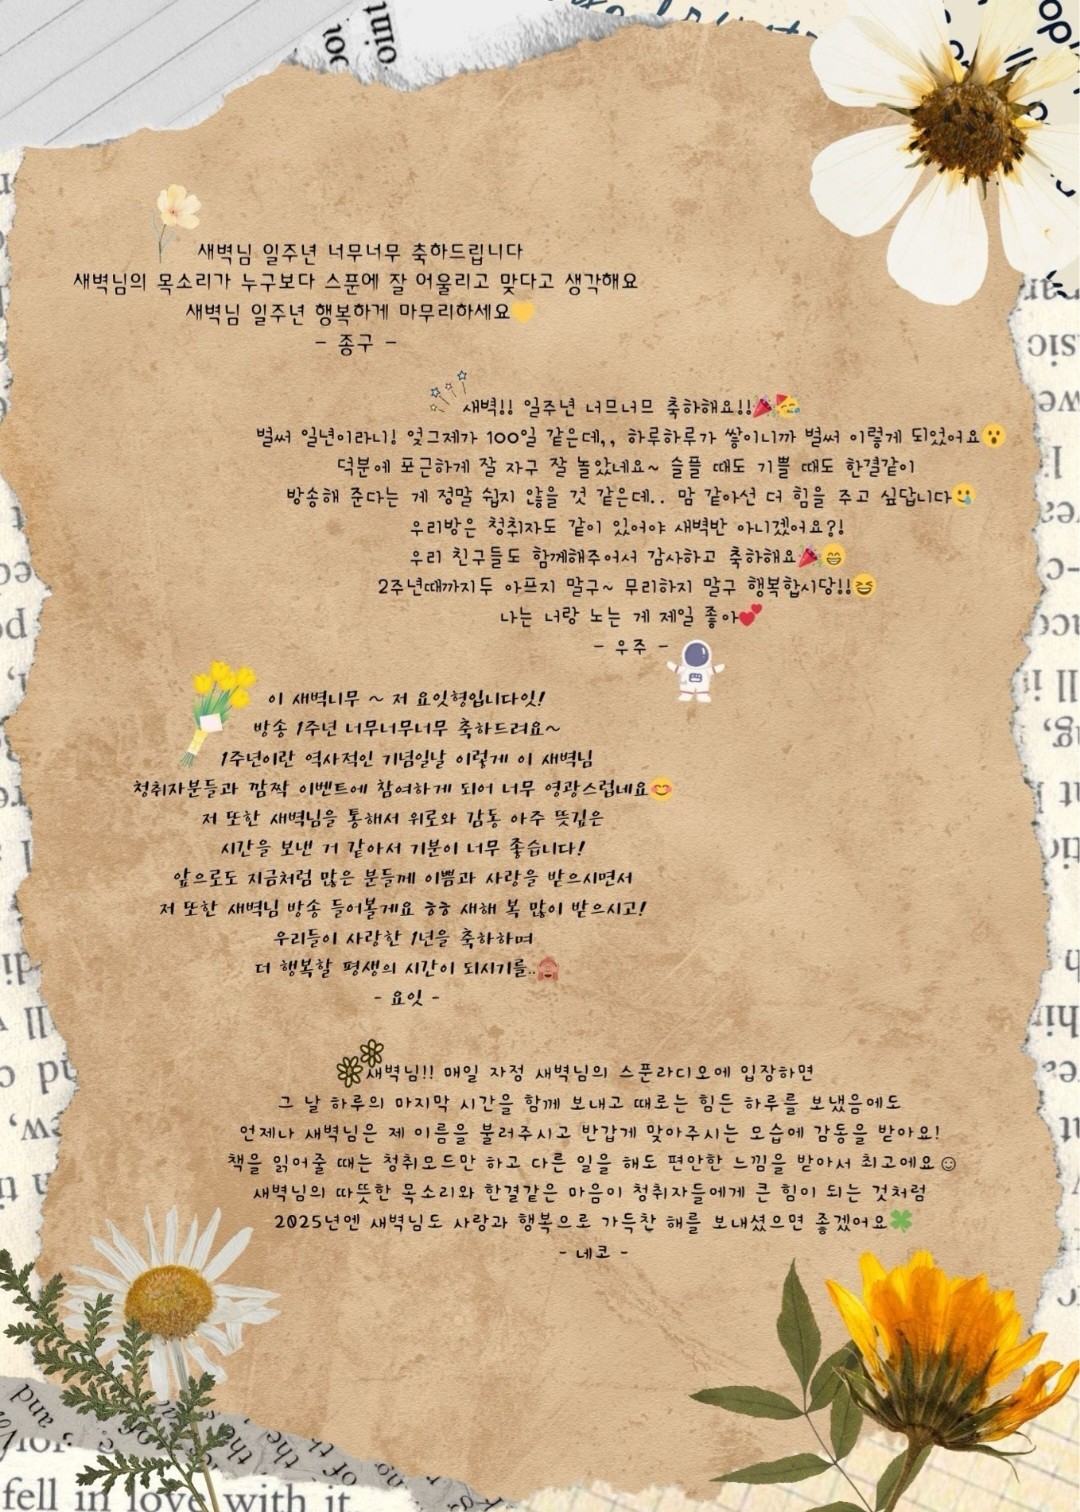 새벽님 일주년 너무너무 축하드립니다
새벽님의 목소리가 누구보다 스푼에 잘 어울리고 맞다고 생각해요
새벽님 일주년 행복하게 마무리하세요💛
- 종구 -
새벽!! 일주년 너므너므 축하해요!!🎉🥳
벌써 일년이라니! 엊그제가 100일 같은데,, 하루하루가 쌓이니까 벌써 이렇게 되었어요😮
덕분에 포근하게 잘 자구 잘 놀았네요~ 슬플 때도 기쁠 때도 한결같이
방송해 준다는 게 정말 쉽지 않을 것 같은데.. 맘 같아선 더 힘을 주고 싶답니다🥲
우리방은 청취자도 같이 있어야 새벽반 아니겠어요?!
우리 친구들도 함께해주어서 감사하고 축하해요🎉😁
2주년때까지두 아프지 말구~ 무리하지 말구 행복합시당!!😆
나는 너랑 노는 게 제일 좋아💕
- 우주 -
이 새벽니무 ~ 저 요잇형입니다잇!
방송 1주년 너무너무너무 축하드려요~
1주년이란 역사적인 기념일날 이렇게 이 새벽님
청취자분들과 깜짝 이벤트에 참여하게 되어 너무 영광스럽네요😊
저 또한 새벽님을 통해서 위로와 감동 아주 뜻깊은
시간을 보낸 거 같아서 기분이 너무 좋습니다!
앞으로도 지금처럼 많은 분들께 이쁨과 사랑을 받으시면서
저 또한 새벽님 방송 들어볼게요 긍긍 새해 복 많이 받으시고!
우리들이 사랑한 1년을 축하하며
더 행복할 평생의 시간이 되시기를..🙈
- 요잇 -
새벽님!! 매일 자정 새벽님의 스푼라디오에 입장하면
그 날 하루의 마지막 시간을 함께 보내고 때로는 힘든 하루를 보냈음에도
언제나 새벽님은 제 이름을 불러주시고 반갑게 맞아주시는 모습에 감동을 받아요!
책을 읽어줄 때는 청취모드만 하고 다른 일을 해도 편안한 느낌을 받아서 최고에요☺
새벽님의 따뜻한 목소리와 한결같은 마음이 청취자들에게 큰 힘이 되는 것처럼
2025년엔 새벽님도 사랑과 행복으로 가득찬 해를 보내셨으면 좋겠어요🍀
- 네코 -
fell in love with it